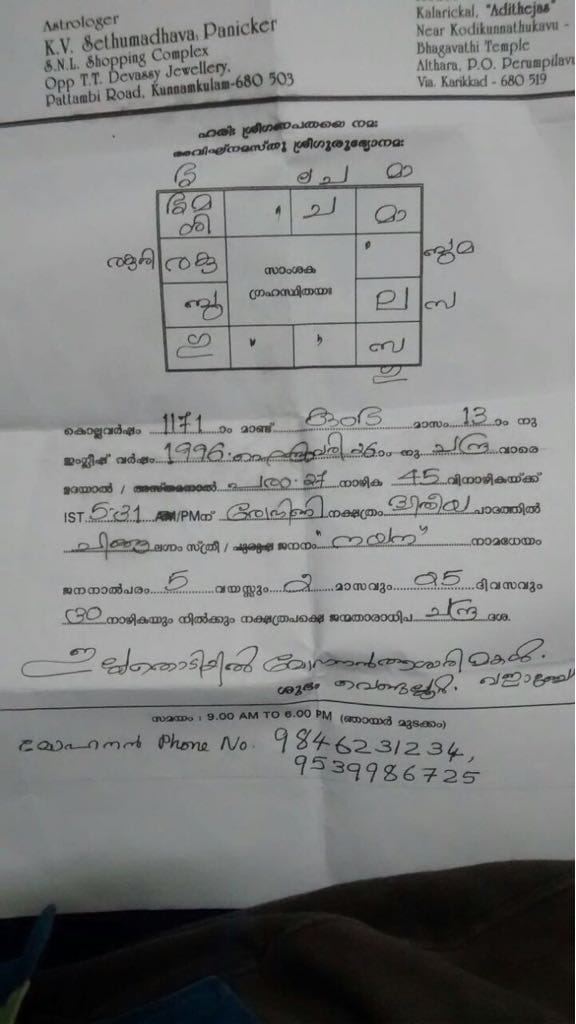 Astrologer
K.V. Sethumadhava, Panicker
S.N.L. Shopping Complex
Opp T.T. Devassy Jewellery,
Pattambi Road, Kunnamkulam-680 503
Kalarickal, "Adithejas"
Near Kodikunnathukavu -
Bhagavathi Temple
Althara, P.O. Perumpilavu
Via. Karikkad - 680 519
ഹരിഃ ശ്രീഗണപതയെ നമഃ
അവിഘ്നമസ്തു ശ്രീഗുരുഭ്യോനമഃ
ല ച മാ
ച മാ
സാംശക
ഗ്രഹസ്ഥിതയഃ
ല സ
കൊല്ലവർഷം 1171 ാം മാണ്ട് കുംഭ മാസം 13 ാം നു
ഇംഗ്ലീഷ് വർഷം 1996 ഫെബ്രുവരി 26 ാം നു ചന്ദ്ര വാരെ
ഉദയാൽ / അസ്തമനാൽ പരം 27 നാഴിക 45 വിനാഴികയ്ക്ക്
IST 5-31 AM/PMന് രോഹിണി നക്ഷത്രം ദ്വിതീയ പാദത്തിൽ
ചിങ്ങ ലഗ്നം സ്ത്രീ / പുരുഷ ജനനം "നയന" നാമധേയം
ജനനാൽപരം 5 വയസ്സും 2 മാസവും 25 ദിവസവും
30 നാഴികയും നിൽക്കും നക്ഷത്രപക്ഷെ ജന്മതാരാധിപ ചന്ദ്ര ദശ.
മോഹനൻ ആശാരി മകൾ.
ശുഭം
സമയം : 9.00 AM TO 6.00 PM (ഞായർ മുടക്കം)
മോഹനൻ Phone No. 9846231234,
9539986725